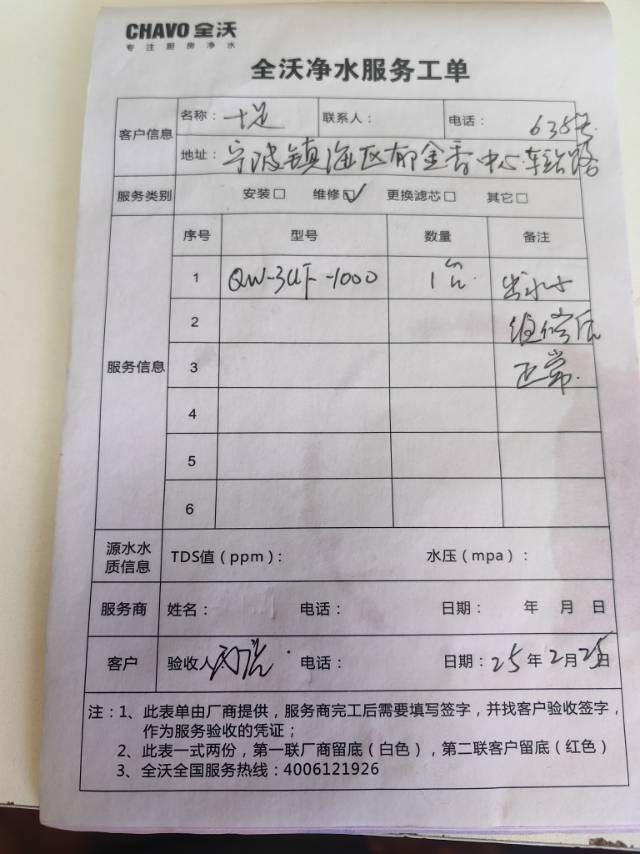 CHAVO 全沃
专注厨房净水
全沃净水服务工单
客户信息 名称：十足 联系人： 电话： 635号
地址：宁波镇海区郁金香中心车站路
服务类别 安装□ 维修☑ 更换滤芯□ 其它□
服务信息 序号 型号 数量 备注
1 QW-3UF-1000 1台 出水小
2 维修后
3 正常.
4
5
6
源水水质信息 TDS值（ppm）： 水压（mpa）：
服务商 姓名： 电话： 日期： 年 月 日
客户 验收人 电话： 日期：25年2月25日
注：1、此表单由厂商提供，服务商完工后需要填写签字，并找客户验收签字，
作为服务验收的凭证；
2、此表一式两份，第一联厂商留底（白色），第二联客户留底（红色）
3、全沃全国服务热线：4006121926